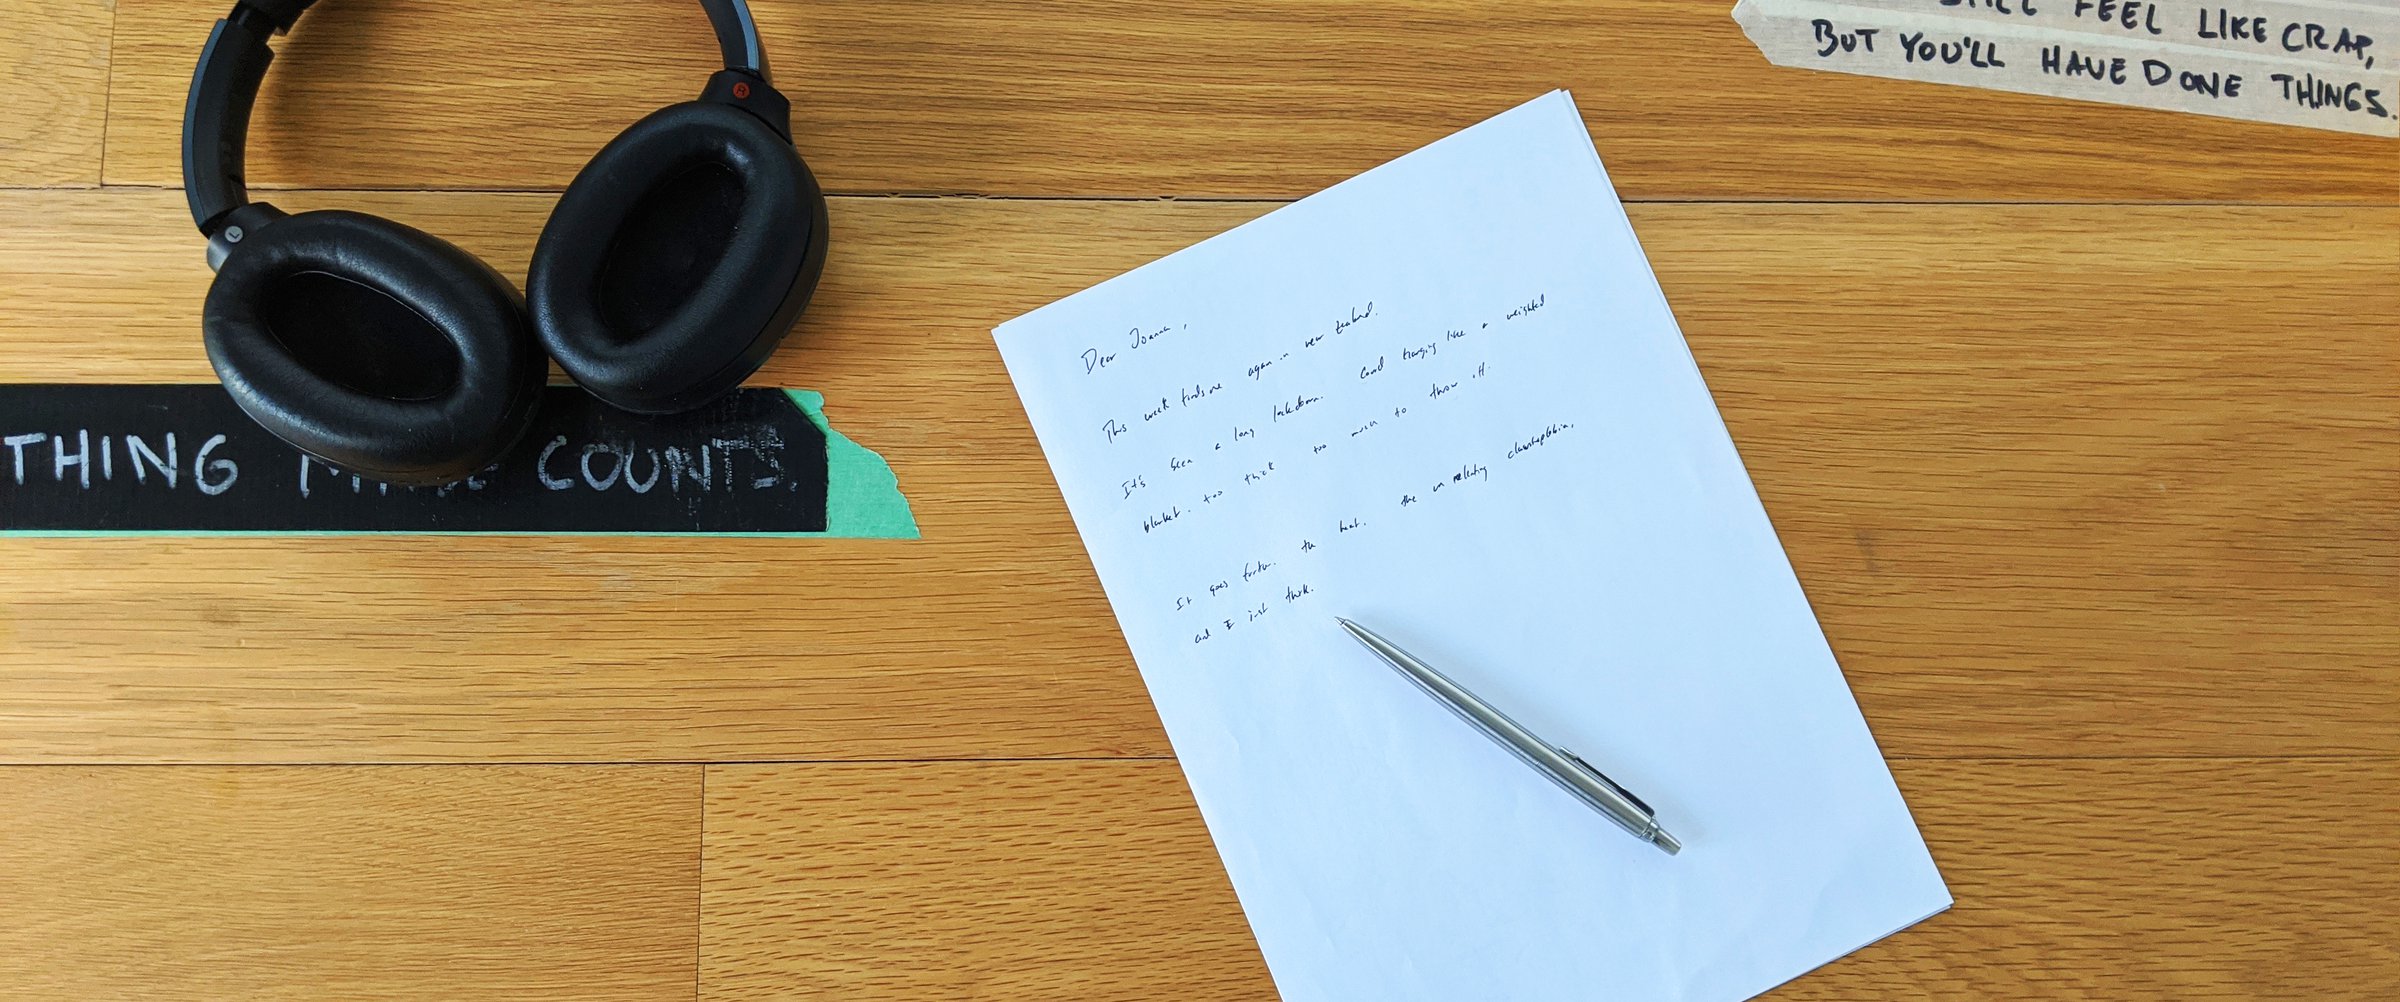 STILL FEEL LIKE CRAP,
BUT YOU'LL HAVE DONE THINGS.
THING MADE COUNTS.
R
L
Dear Joanna,
This week finds me again in new zealand.
It's been a long lockdown. Covid hanging like a weighted
blanket. too thick too much to throw off.
It goes further. the heat. the unrelenting claustrophobia,
and I just think.